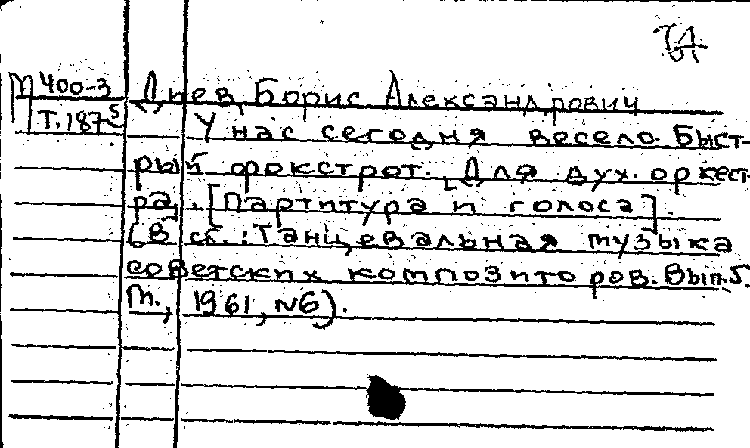 М 400-3
Т.1875
Диев, Борис Александрович
У нас сегодня весело. Быст-
рый фокстрот. [Для дух. оркест-
ра]. [Партитура и голоса].
(В сб.: Танцевальная музыка
советских композиторов. Вып.5.
М., 1961, №6).